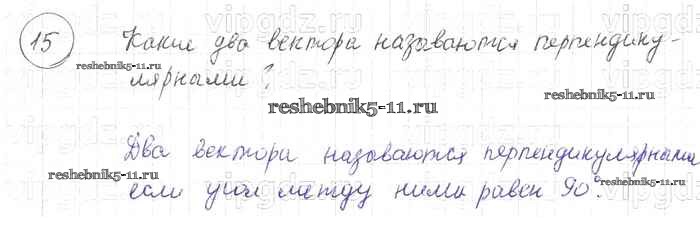 15 Какие два вектора называются перпендику-
лярными?
Два вектора называются перпендикулярными
если угол между ними равен 90°.
reshebnik5-11.ru
reshebnik5-11.ru
reshebnik5-11.ru
reshebnik5-11.ru